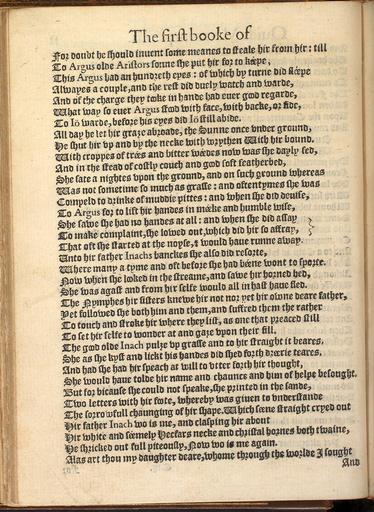 The first booke of
For doubt he should inuent some meanes to steale hir from hir: till
To Argus olde Aristors sonne she put hir for to kéepe,
This Argus had an hundreth eyes: of which by turne did sléepe
Alwayes a couple, and the rest did duely watch and warde,
And of the charge they tooke in hande had euer good regarde,
What way so euer Argus stood with face, with backe, or side,
To Iô warde, before his eyes did Iô still abide.
All day he let hir graze abroade, the Sunne once vnder ground,
He shut hir vp and by the necke with wrythen With hir bound.
With croppes of trées and bitter wéedes now was she dayly fed,
And in the stead of costly couch and good soft featherbed,
She sate a nightes vpon the ground, and on such ground whereas
Was not sometime so much as grasse: and oftentymes she was
Compeld to drinke of muddie pittes: and when she did deuise,
To Argus for to lift hir handes in méeke and humble wise,
She sawe she had no handes at all: and when she did assay
To make complaint, she lowed out, which did hir so affray,
That oft she started at the noyse, & would haue runne away.
Unto hir father Inachs banckes she also did resorte,
Where many a tyme and oft before she had béene wont to sporte.
Now when she looked in the streame, and sawe hir horned hed,
She was agast and from hir selfe would all in hast haue fled.
The Nymphes hir sisters knewe hir not nor yet hir owne deare father,
Yet followed she both him and them, and suffred them the rather
To touch and stroke hir where they list, as one that preaced still
To set hir selfe to wonder at and gaze vpon their fill.
The good olde Inach pulze vp grasse and to hir straight it beares.
She as she kyst and lickt his handes did shed forth dréerie teares.
And had she had hir speach at will to vtter forth hir thought,
She would haue tolde hir name and chaunce and him of helpe besought.
But for bicause she could not speake, she printed in the sande,
Two letters with hir foote, whereby was giuen to vnderstande
The sorrowfull chaunging of hir shape. Which séene straight cryed out
Hir father Inach wo is me, and clasping hir about
Hir white and séemely Heefars necke and christal hornes both twaine,
He shricked out full piteously, Now wo is me again.
Alas art thou my daughter deare, whome through the worlde I sought
And